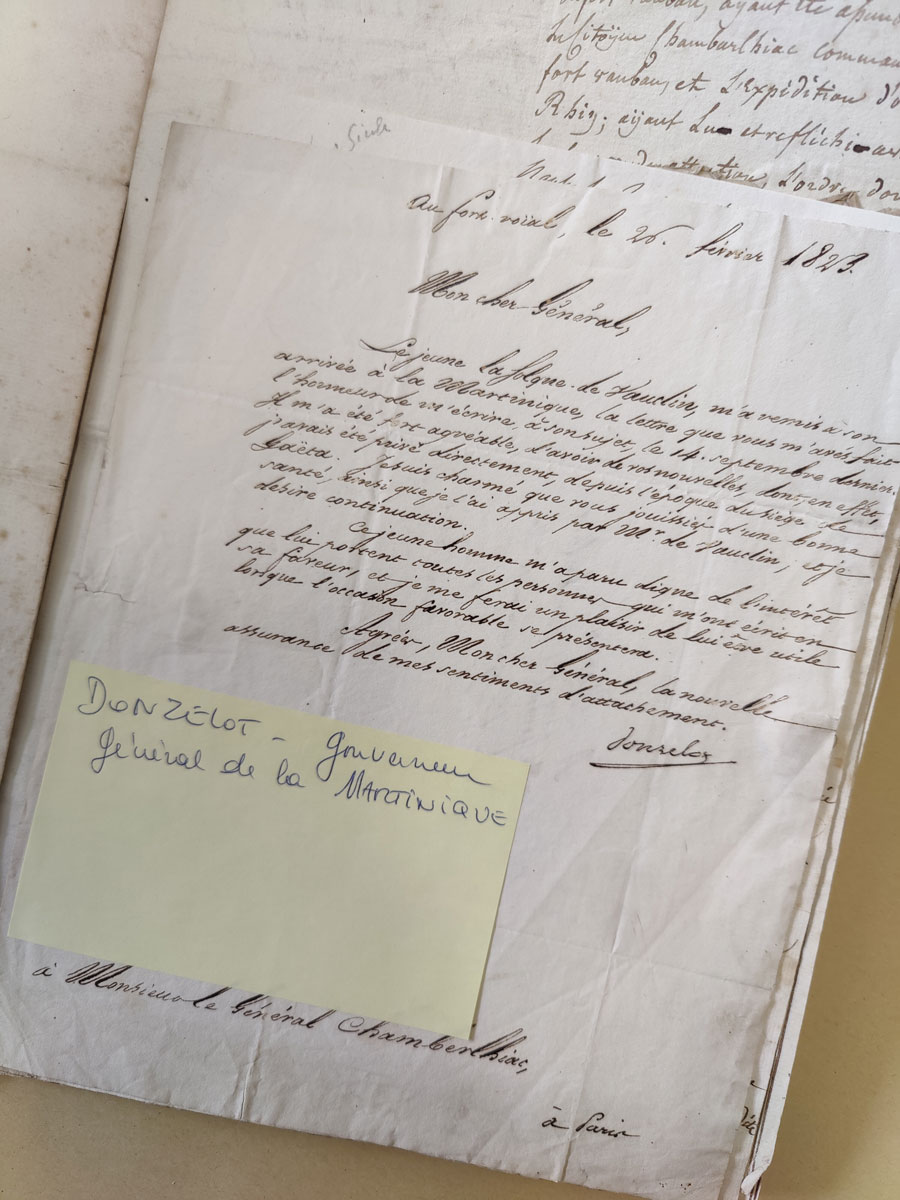 ayant été
le Citoyen Chambarlhiac comman
fort vauban, et L'Expédition d'o
Rhin; ayant Lu et refléchi av
attention, L'ordre, don
au fort. roial, le 26. février 1823.
Mon cher Général,
Le jeune de Vaudin, m'a remis à son
arrivée à la Martinique, la lettre que vous m'avés fait
l'honneur de m'écrire, à son sujet, le 14. septembre dernier.
Il m'a été fort agréable, d'avoir de vos nouvelles, dont, en effet,
j'avais été privé directement, depuis l'époque du siège de
Gaëta. Je suis charmé que vous jouissiez d'une bonne
santé, ainsi que je l'ai appris par Mr. de Vaudin, et je
désire continuation.
Ce jeune homme m'a paru digne de l'intérêt
que lui portent toutes les personnes qui m'ont écrit en
sa faveur, et je me ferai un plaisir de lui être utile
lorsque l'occason favorable se présentera.
Agréés, Mon cher Général, la nouvelle
assurance de mes sentiments d'attachement.
Donzelot
DONZELOT - Gouverneur
Général de la MARTINIQUE
à Monsieur le Général Chamberlhiac,
à Paris